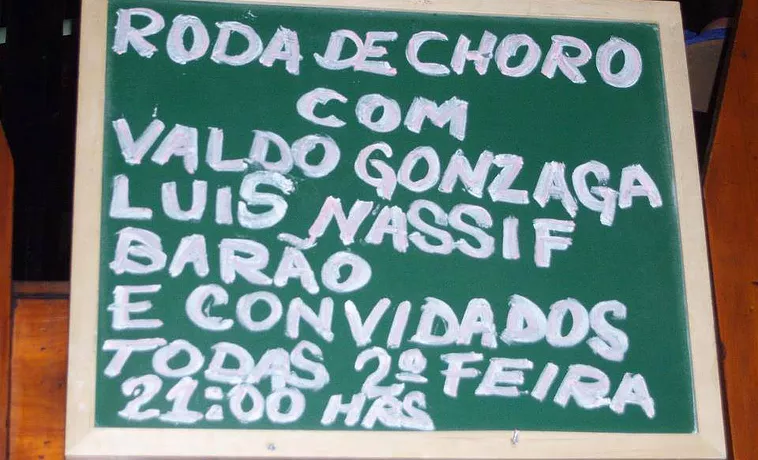 RODA DE CHORO
COM
VALDO GONZAGA
LUIS NASSIF
BARÃO
E CONVIDADOS
TODAS 2º FEIRA
21:00 HRS